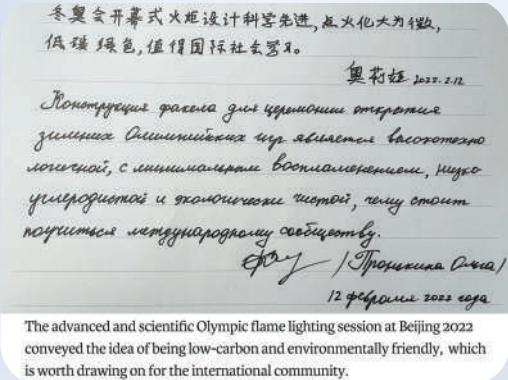 冬奥会开幕式火炬设计科学先进,点火化大为微,
低碳绿色,值得国际社会学习。
奥莉娅 2022.2.12
Конструкция факела для церемонии открытия
зимних Олимпийских игр является высокотехно
логичной, с минимальным воспламенением, низко
углеродистой и экологически чистой, чему стоит
поучиться международному сообществу.
/Пронькина Ольга/
12 февраля 2022 года
The advanced and scientific Olympic flame lighting session at Beijing 2022
conveyed the idea of being low-carbon and environmentally friendly, which
is worth drawing on for the international community.